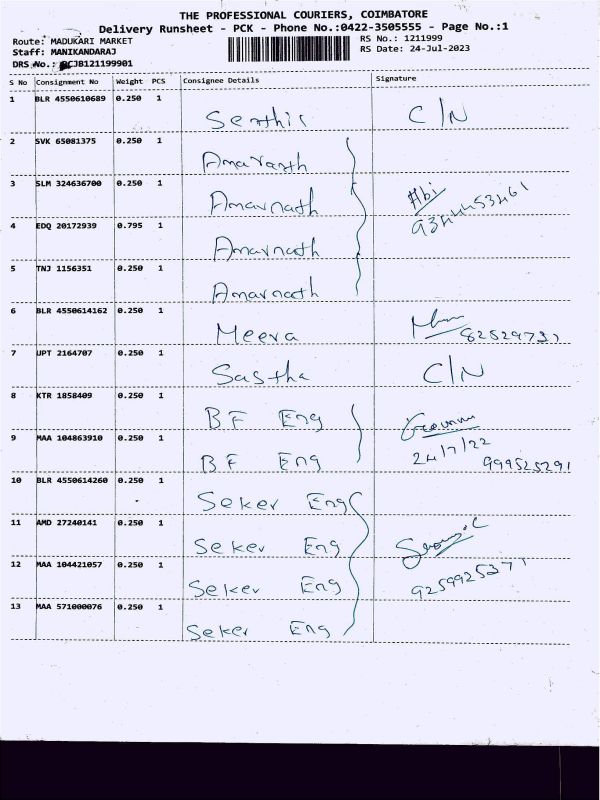 THE PROFESSIONAL COURIERS, COIMBATORE
Delivery Runsheet - PCK - Phone No.:0422-3505555 - Page No.:1
Route: MADUKARI MARKET RS No.: 1211999
Staff: MANIKANDARAJ RS Date: 24-Jul-2023
DRS No.: PCJB121199901
S No Consignment No Weight PCS Consignee Details Signature
1 BLR 4550610689 0.250 1 Senthil C/N
2 SVK 65081375 0.250 1 Amarnath
3 SLM 324636700 0.250 1 Amarnath Abi
4 EDQ 20172939 0.795 1 Amarnath
5 TNJ 1156351 0.250 1 Amarnath
6 BLR 4550614162 0.250 1 Meera
7 UPT 2164707 0.250 1 Sastha C/N
8 KTR 1858409 0.250 1 BF Eng
9 MAA 104863910 0.250 1 BF Eng 24/7/22 999525291
10 BLR 4550614260 0.250 1 Seker Eng
11 AMD 27240141 0.250 1 Seker Eng
12 MAA 104421057 0.250 1 Seker Eng
13 MAA 571000076 0.250 1 Seker Eng